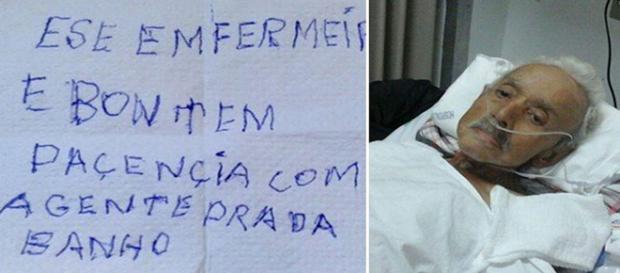 ESE EMFERMEIR
E BOM TEM
PACENÇIA COM
AGENTE PRA DA
BANHO